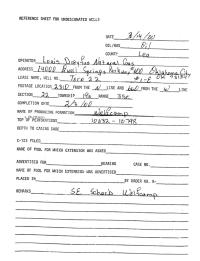 REFERENCE SHEET FOR UNDESIGNATED WELLS
DATE 3/14/00
OIL/GAS Oil
COUNTY Lea
OPERATOR Louis Dreyfus Natural Gas
ADDRESS 14000 Quail Springs Parkway #600 Oklahoma City
OK 73134
LEASE NAME, WELL NO. 22
FOOTAGE LOCATION 2310 FROM THE N LINE AND 660 FROM THE W LINE
SECTION 22 TOWNSHIP 19s RANGE 35e
COMPLETION DATE 2/5/00
NAME OF PRODUCING FORMATION Wolfcamp
TOP OF PERFORATIONS 10632 - 10798
DEPTH TO CASING SHOE
C-123 FILED
NAME OF POOL FOR WHICH EXTENSION WAS ASKED
ADVERTISED FOR HEARING CASE NO.
NAME OF POOL FOR WHICH EXTENSION WAS ADVERTISED
PLACED IN BY ORDER NO. R-
REMARKS SE Scharb Wolfcamp